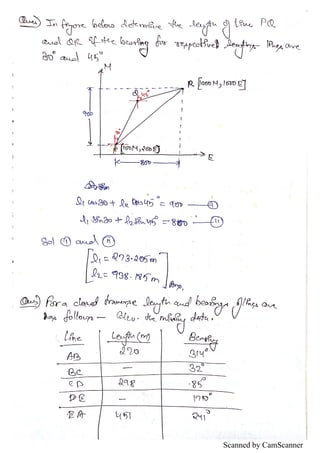 Ques) In figure below determine the length of line PQ
and QR if the bearing for respective lengths lines are
30° and 45°
N
R [1000 N, 1000 E]
Q
45°
900
30°
P [100 N, 200 E]
800
E
l₁ cos30 + l₂ cos45° = 900 — (I)
l₁ sin30 + l₂ sin45° = 800 — (II)
Sol (I) and (II)
l₁ = 273.205 m
l₂ = 938.185 m
Ans,
Ques) For a closed traverse length and bearings of lines are
as follows — Calcu. the missing data.
Line Length (m) Bearing
AB 270 314°
BC — 32°
CD 298 85°
DE — 170°
EA 451 241°
Scanned by CamScanner